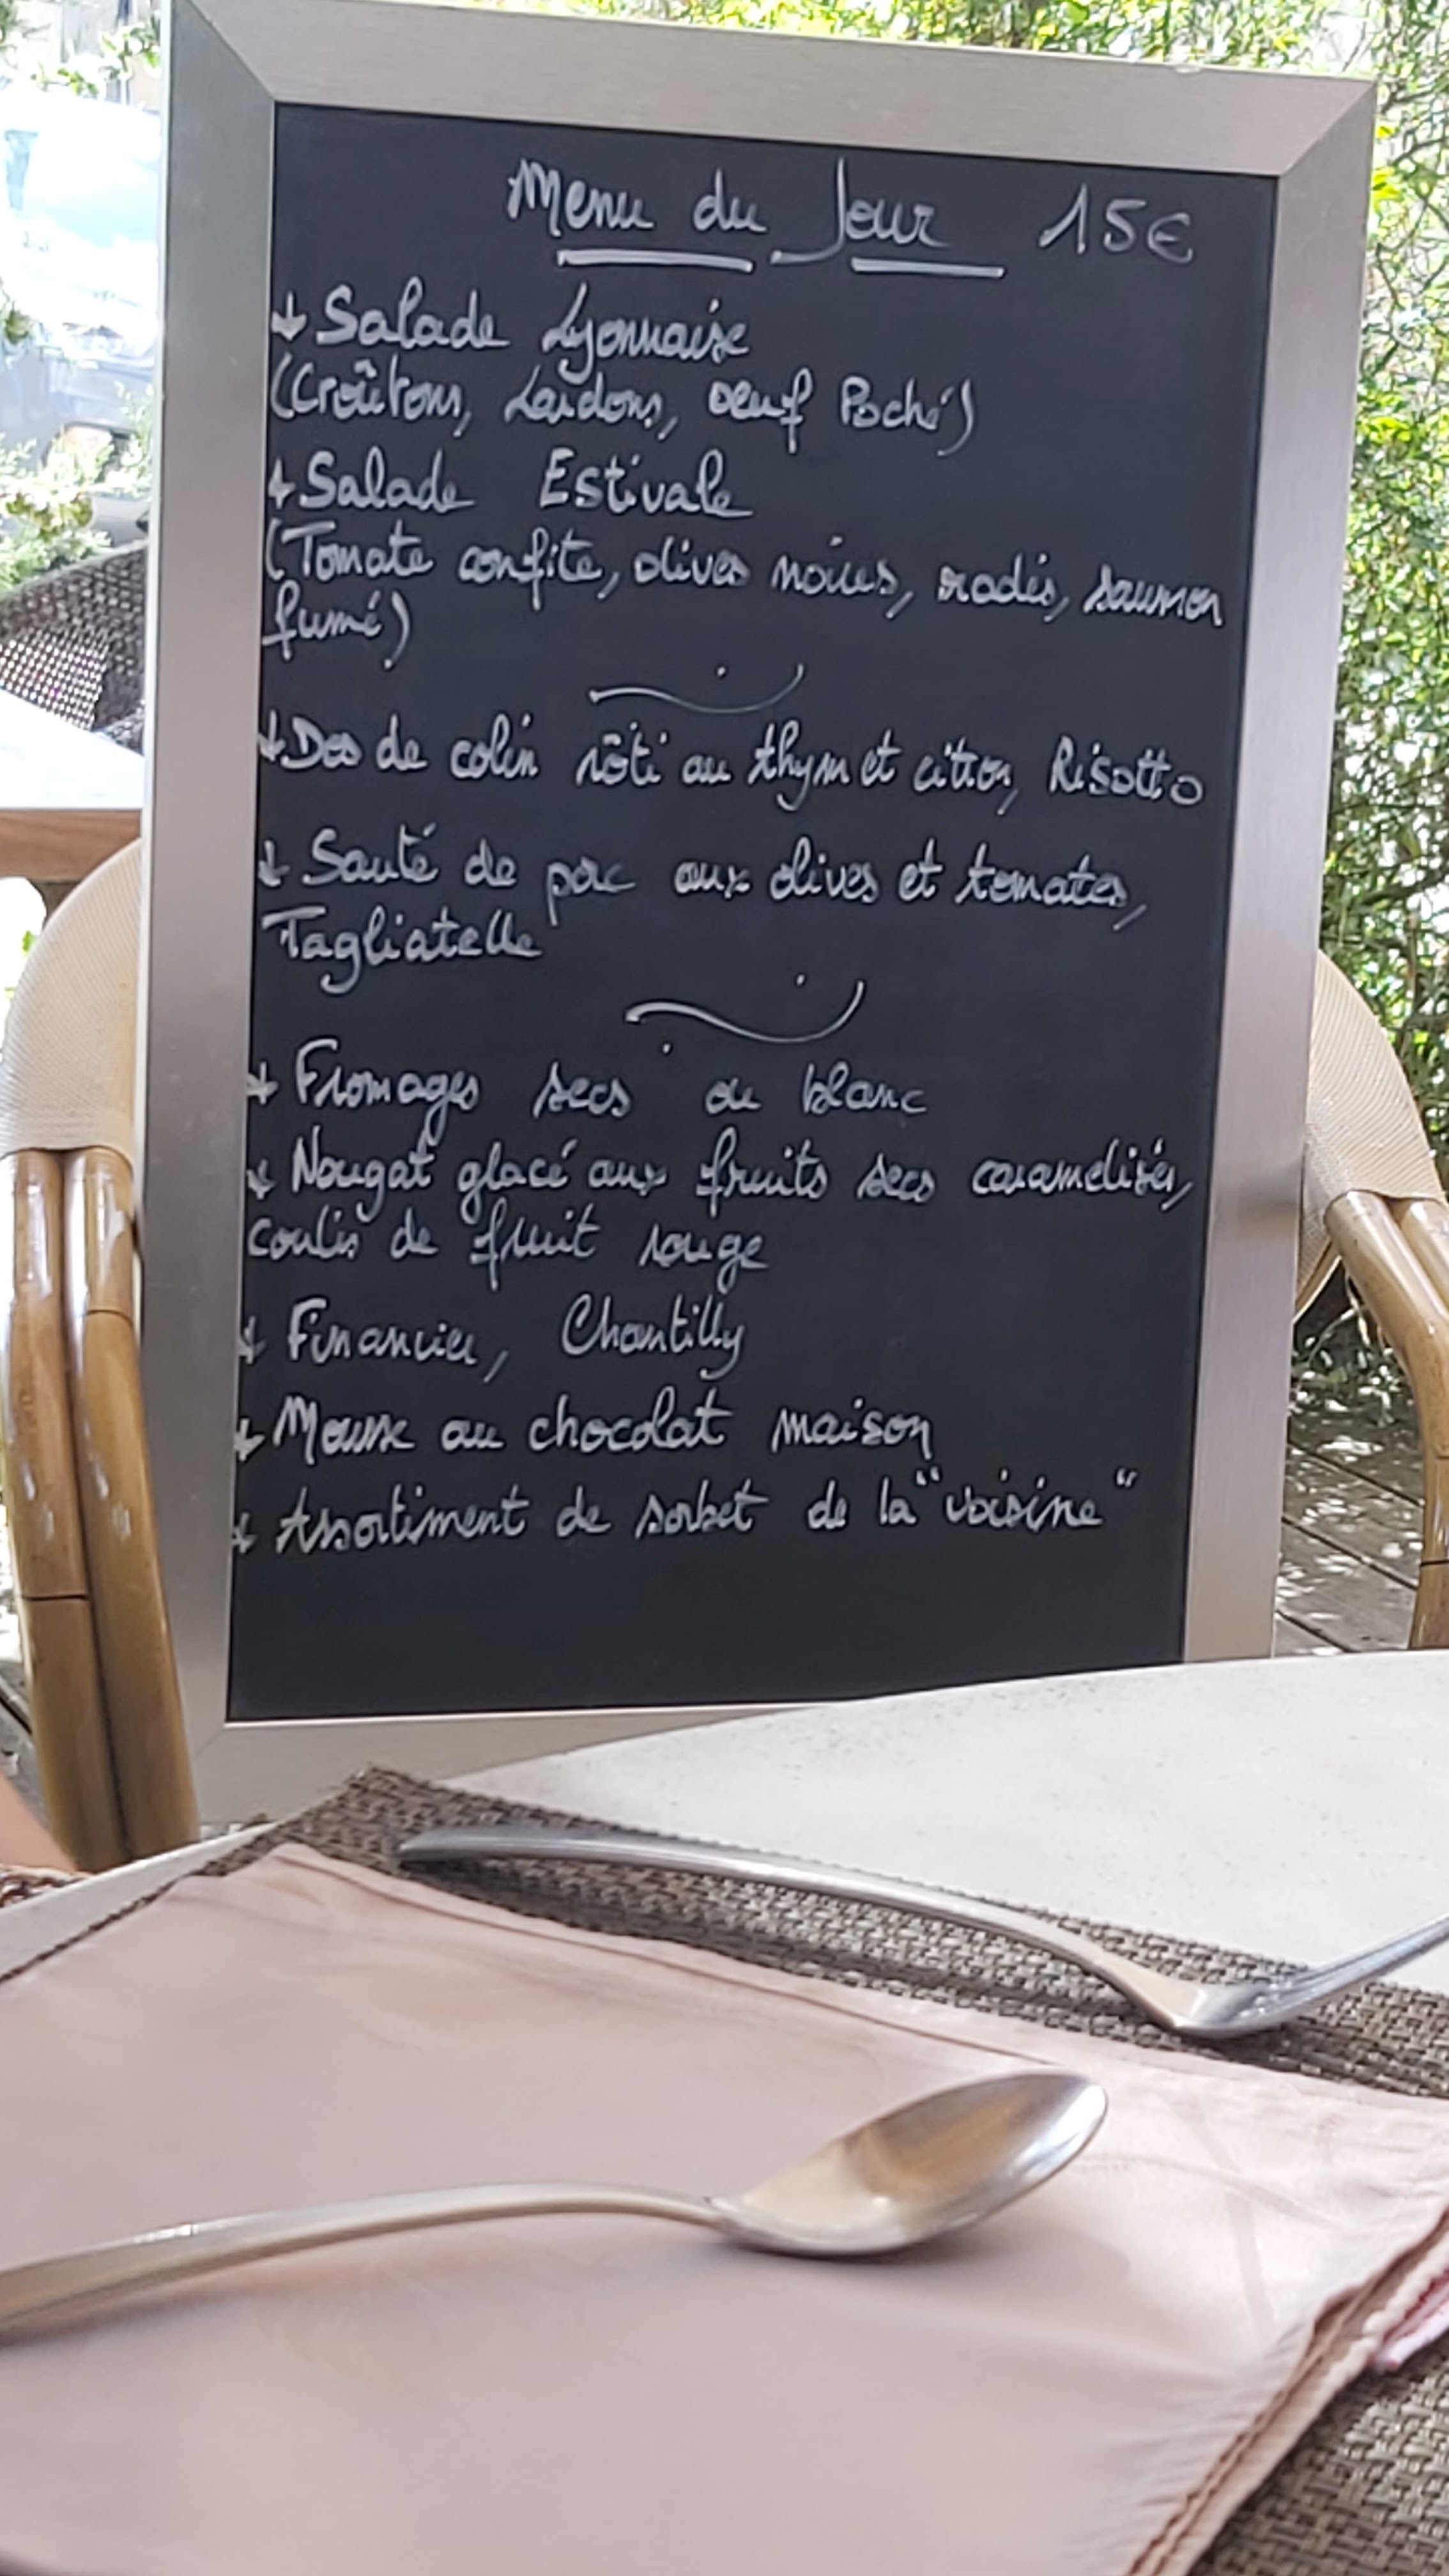 Menu du Jour 15€
+ Salade Lyonnaise
(Croûtons, Lardons, oeuf Poché)
+ Salade Estivale
(Tomate confite, olives noires, radis, saumon
fumé)
+ Dos de colin rôti au thym et citron, Risotto
+ Sauté de porc aux olives et tomates,
Tagliatelle
+ Fromages secs ou blanc
+ Nougat glacé aux fruits secs caramélisés,
coulis de fruit rouge
+ Financier, Chantilly
+ Mousse au chocolat maison
+ Assortiment de sorbet de la "voisine"